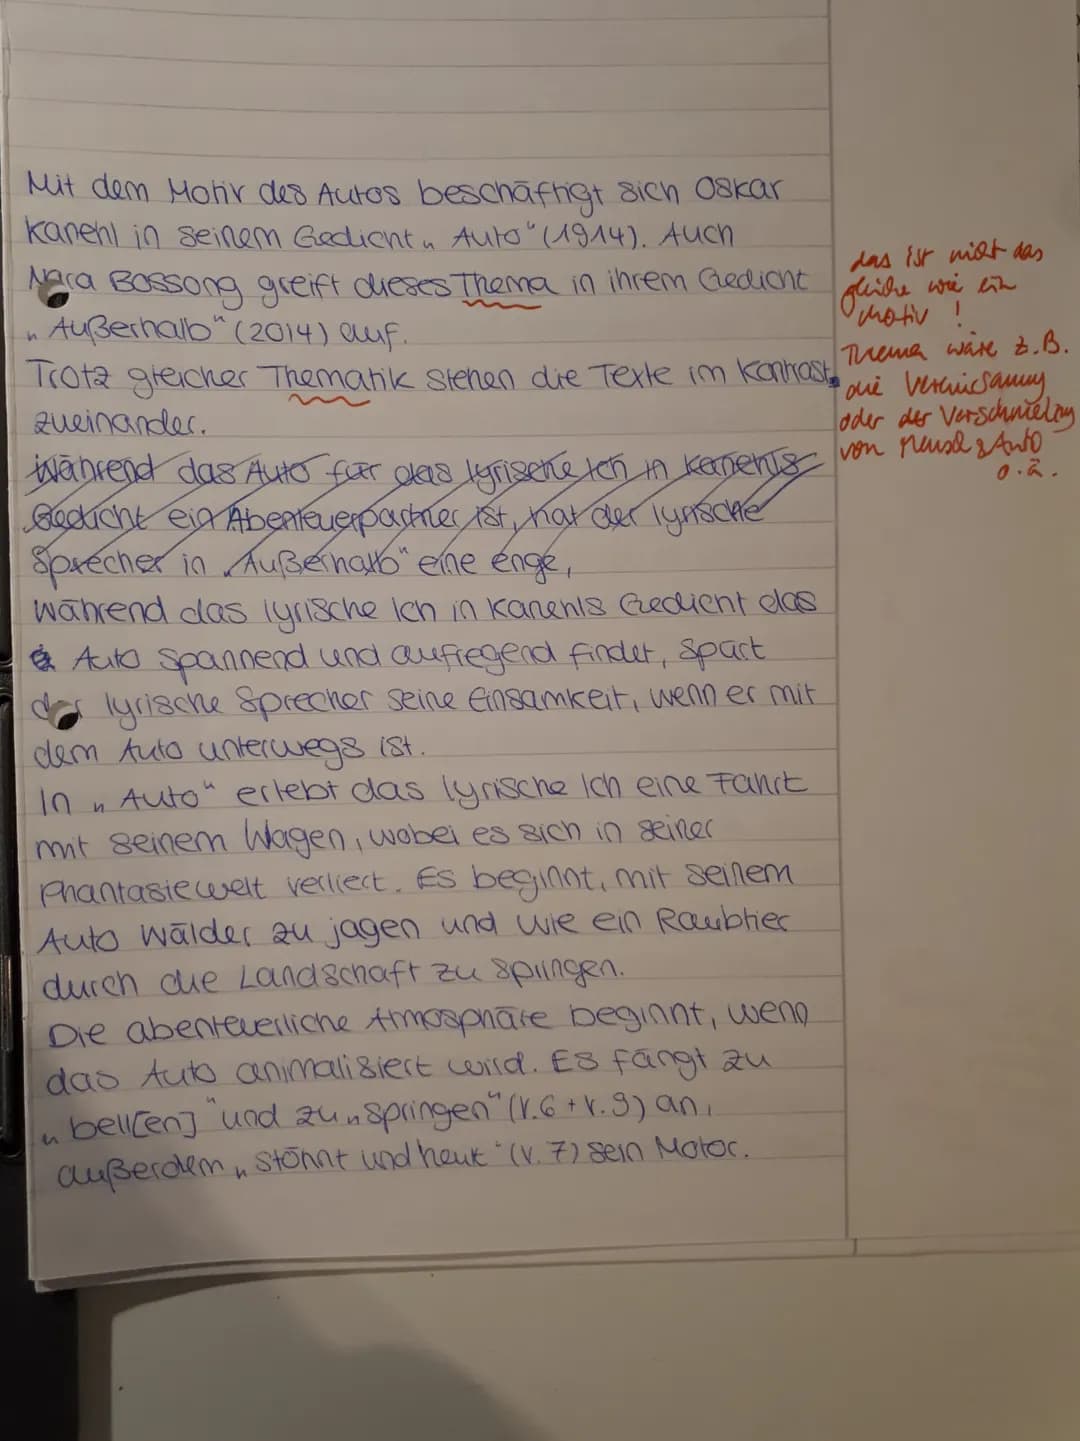 Mit dem Motiv des Autos beschäftigt sich Oskar
Kanehl in seinem Gedicht „Auto" (1914). Auch
Nora Bossong greift dieses Thema in ihrem Gedicht
„Außerhalb" (2014) auf.
Trotz gleicher Thematik stehen die Texte im Kontrast
zueinander.
Während das Auto für das lyrische Ich in Kanehls
Gedicht ein Abenteuerpartner ist, hat der lyrische
Sprecher in „Außerhalb" eine enge,
Während das lyrische Ich in Kanehls Gedicht das
Auto spannend und aufregend findet, spart
der lyrische Sprecher seine Einsamkeit, wenn er mit
dem Auto unterwegs ist.
In „Auto" erlebt das lyrische Ich eine Fahrt
mit seinem Wagen, wobei es sich in seiner
Phantasiewelt verliert. Es beginnt, mit seinem
Auto Wälder zu jagen und wie ein Raubtier
durch die Landschaft zu springen.
Die abenteuerliche Atmosphäre beginnt, wenn
das Auto animalisiert wird. Es fängt zu
„bell[en]" und zu „springen" (V.6 + V.9) an,
außerdem „stöhnt und heult" (V. 7) sein Motor.
das ist nicht das
gleiche wie ein
Motiv !
Thema wäre z.B.
die
oder der Verschmelzung
von Mensch & Auto
o.ä.